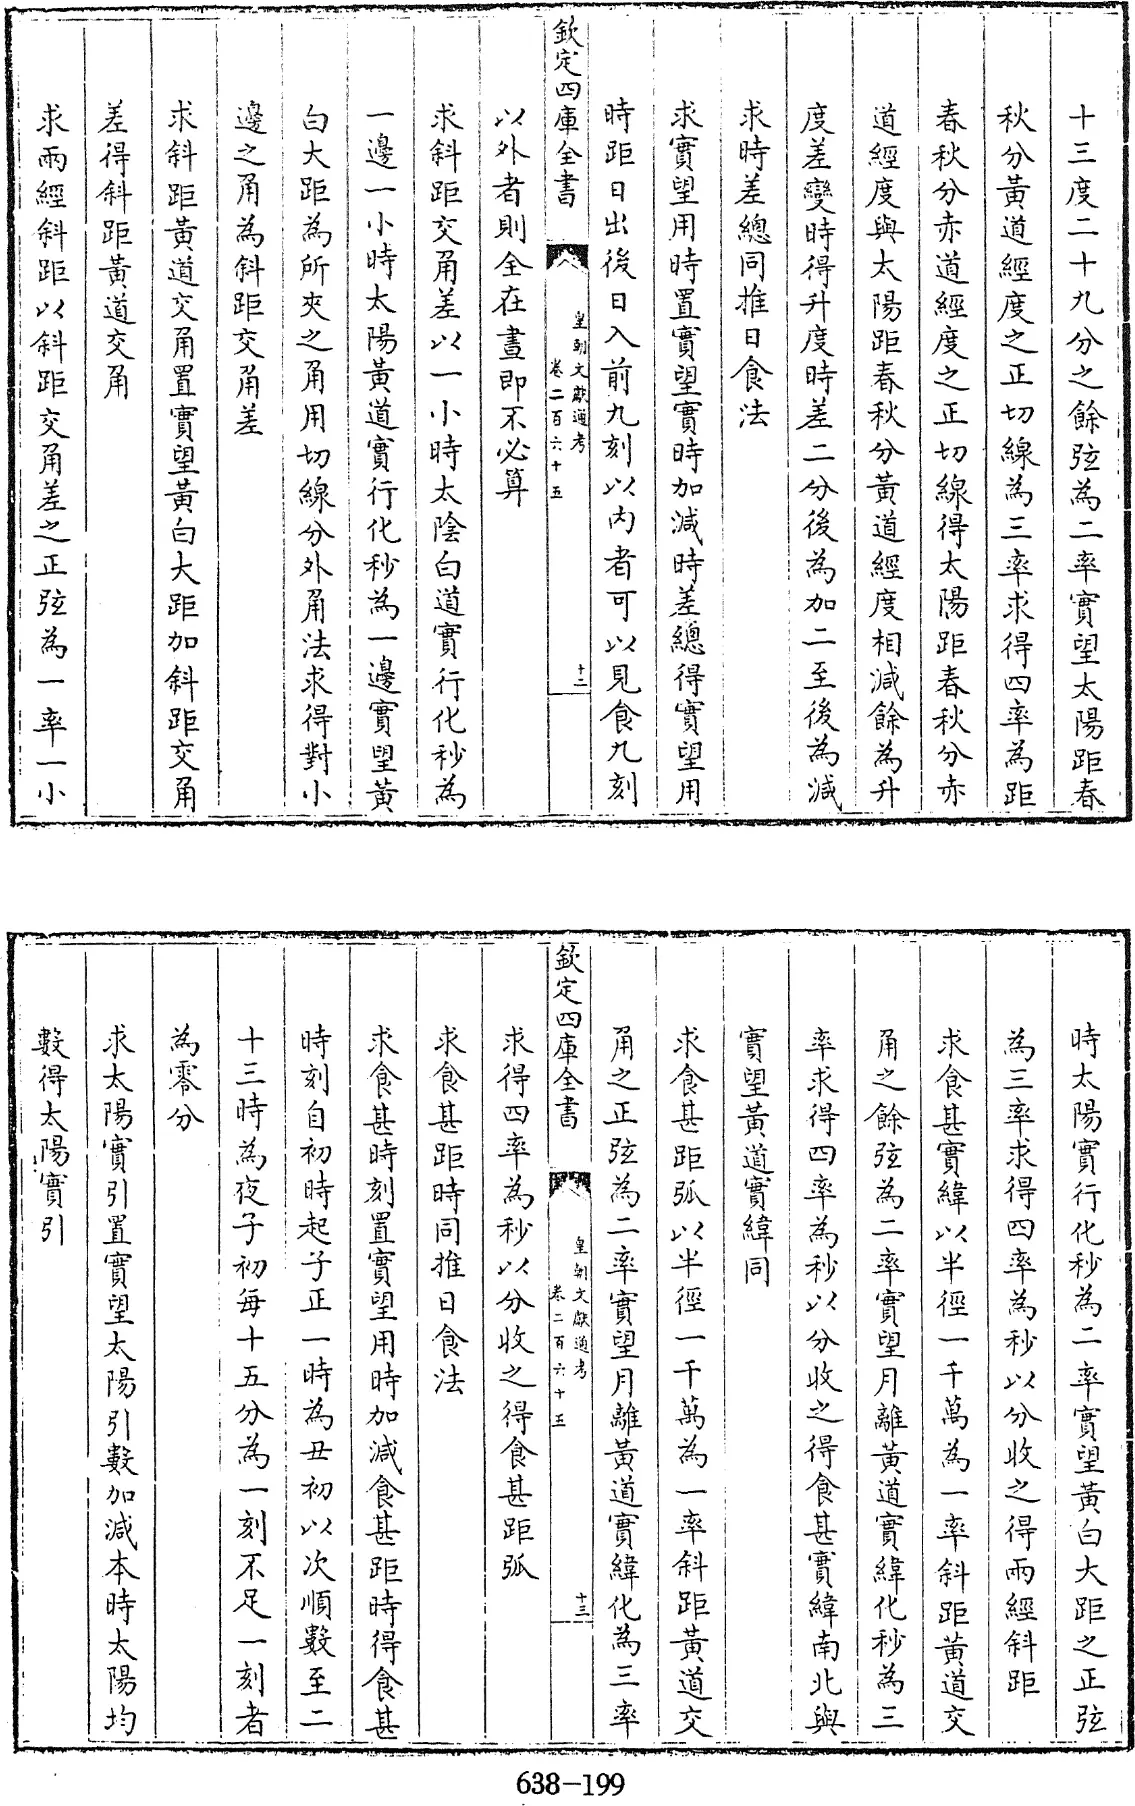 十三度二十九分之餘弦為二率實望太陽距春
秋分黃道經度之正切線為三率求得四率為距
春秋分赤道經度之正切線得太陽距春秋分赤
道經度與太陽距春秋分黃道經度相減餘為升
度差變時得升度時差二分後為加二至後為減
求時差總同推日食法
求實望用時置實望實時加減時差總得實望用
時距日出後日入前九刻以內者可以見食九刻
欽定四庫全書
皇朝文獻通考
卷二百六十五
十二
以外者則全在晝即不必算
求斜距交角差以一小時太陰白道實行化秒為
一邊一小時太陽黃道實行化秒為一邊實望黃
白大距為所夾之角用切線分外角法求得對小
邊之角為斜距交角差
求斜距黃道交角置實望黃白大距加斜距交角
差得斜距黃道交角
求兩經斜距以斜距交角差之正弦為一率一小
時太陽實行化秒為二率實望黃白大距之正弦
為三率求得四率為秒以分收之得兩經斜距
求食甚實緯以半徑一千萬為一率斜距黃道交
角之餘弦為二率實望月離黃道實緯化秒為三
率求得四率為秒以分收之得食甚實緯南北與
實望黃道實緯同
求食甚距弧以半徑一千萬為一率斜距黃道交
角之正弦為二率實望月離黃道實緯化為三率
欽定四庫全書
皇朝文獻通考
卷二百六十五
十三
求得四率為秒以分收之得食甚距弧
求食甚距時同推日食法
求食甚時刻置實望用時加減食甚距時得食甚
時刻自初時起子正一時為丑初以次順數至二
十三時為夜子初每十五分為一刻不足一刻者
為零分
求太陽實引置實望太陽引數加減本時太陽均
數得太陽實引
638-199